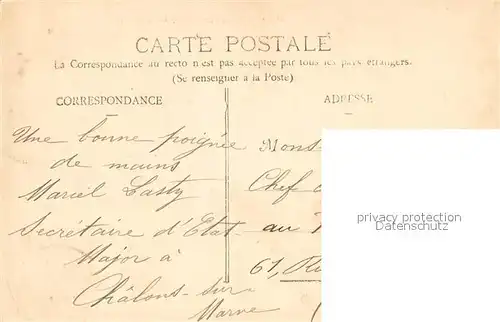 CARTE POSTALE
La Correspondance au recto n'est pas acceptée par tous les pays étrangers.
(Se renseigner à la Poste)
CORRESPONDANCE
Une bonne poignée
de mains
Marcel Lasty
Secrétaire d'Etat-
Major à
Châlons-sur
Marne
ADRESSE
Mons
Chef
au
61, Ru
privacy protection
Datenschutz